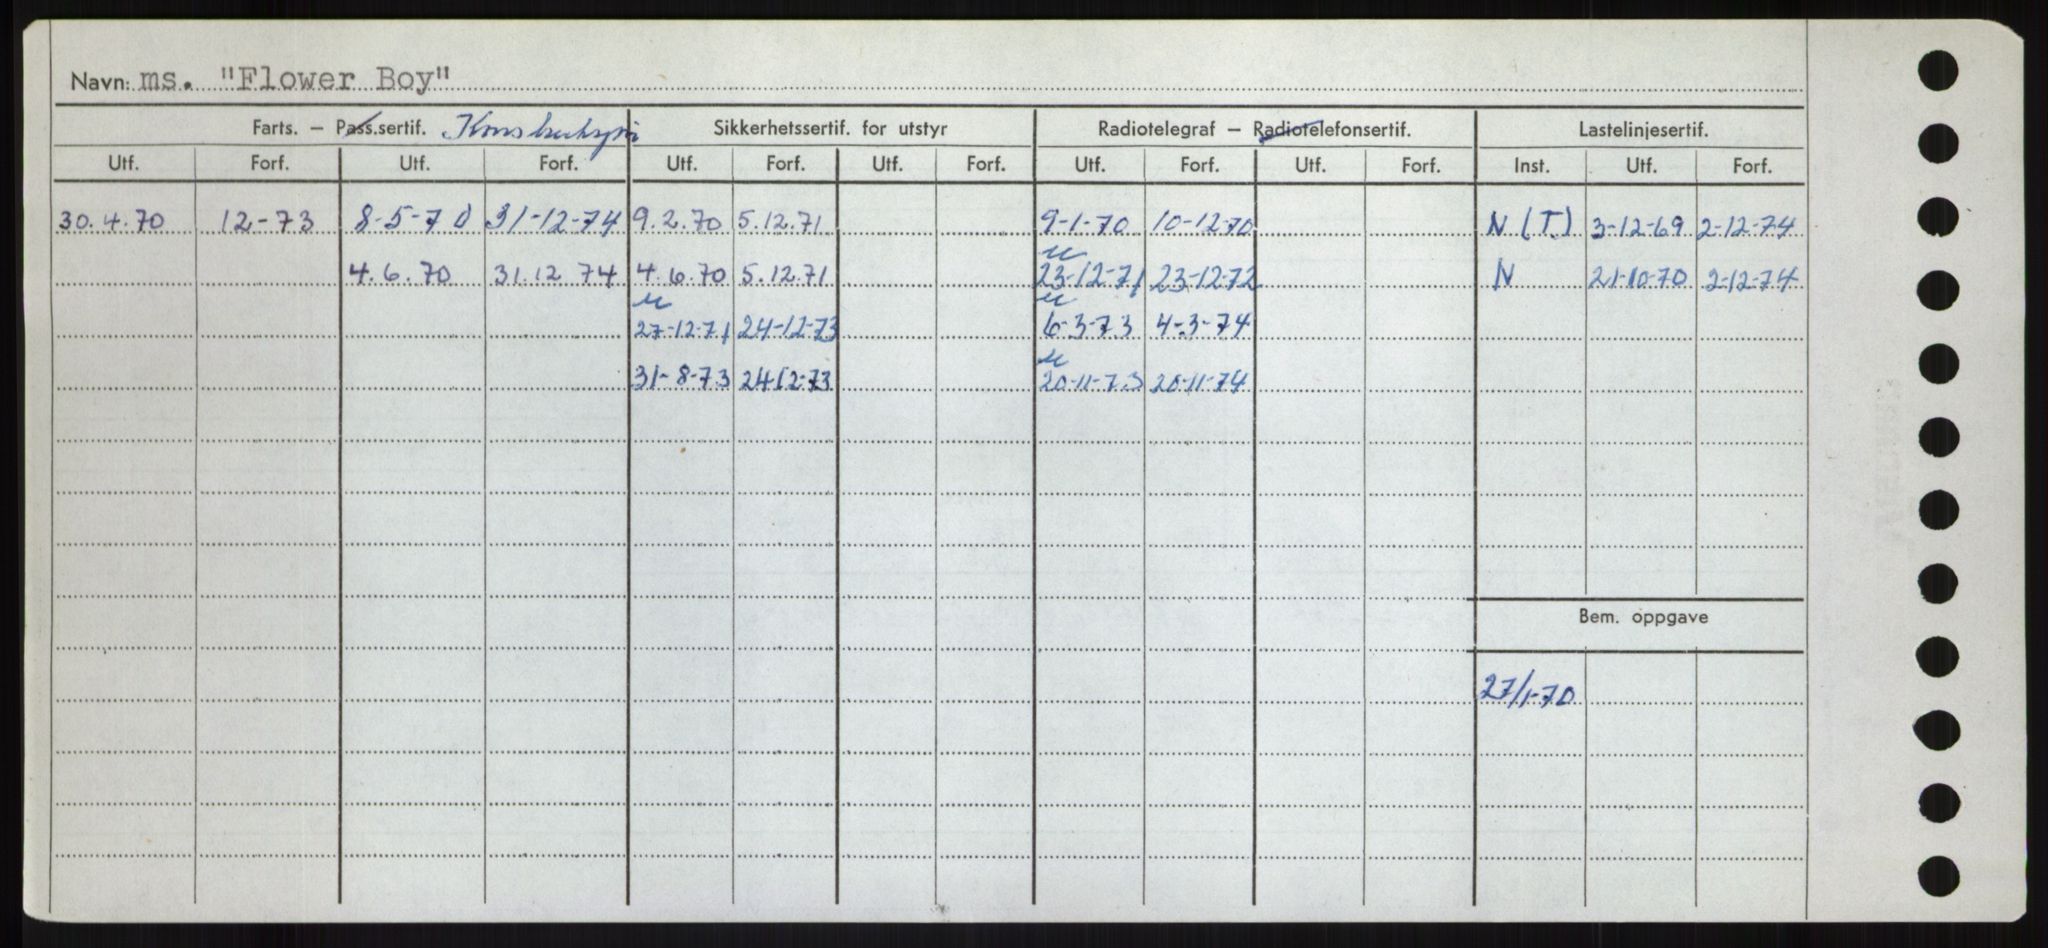 Navn: ms. "Flower Boy"
Farts. – Pass.sertif. Konstruksjon Sikkerhetssertif. for utstyr Radiotelegraf – Radiotelefonsertif. Lastelinjesertif.
Utf. Forf. Utf. Forf. Utf. Forf. Utf. Forf. Utf. Forf. Utf. Forf. Inst. Utf. Forf.
30.4.70 12-73 8-5-70 31-12-74 9.2.70 5.12.71 9-1-70 10-12-70 N (T.) 3-12-69 2-12-74
4.6.70 31.12 74 4.6.70 5.12.71 23-12-71 23-12-72 N 21-10-70 2-12-74
27-12-71 24-12-73 6-3-73 4-3-74
31-8-73 24-12-73 20-11-73 20-11-74
Bem. oppgave
27/1-70